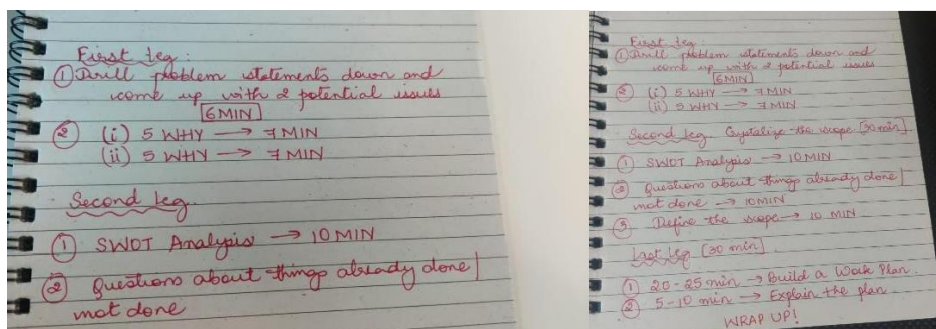 First leg:
① Drill problem statements down and
come up with 2 potential issues
6 MIN
② (i) 5 WHY → 7 MIN
(ii) 5 WHY → 7 MIN
Second leg
① SWOT Analysis → 10 MIN
② Questions about things already done |
not done
First leg:
① Drill problem statements down and
come up with 2 potential issues
[6 MIN]
② (i) 5 WHY → 7 MIN
(ii) 5 WHY → 7 MIN
Second leg Crystalize the scope [30 min].
① SWOT Analysis → 10 MIN
② Questions about things already done |
not done → 10 MIN
③ Define the scope → 10 MIN
Last leg [30 min].
① 20-25 min → Build a Work Plan.
② 5-10 min → Explain the plan.
WRAP UP!